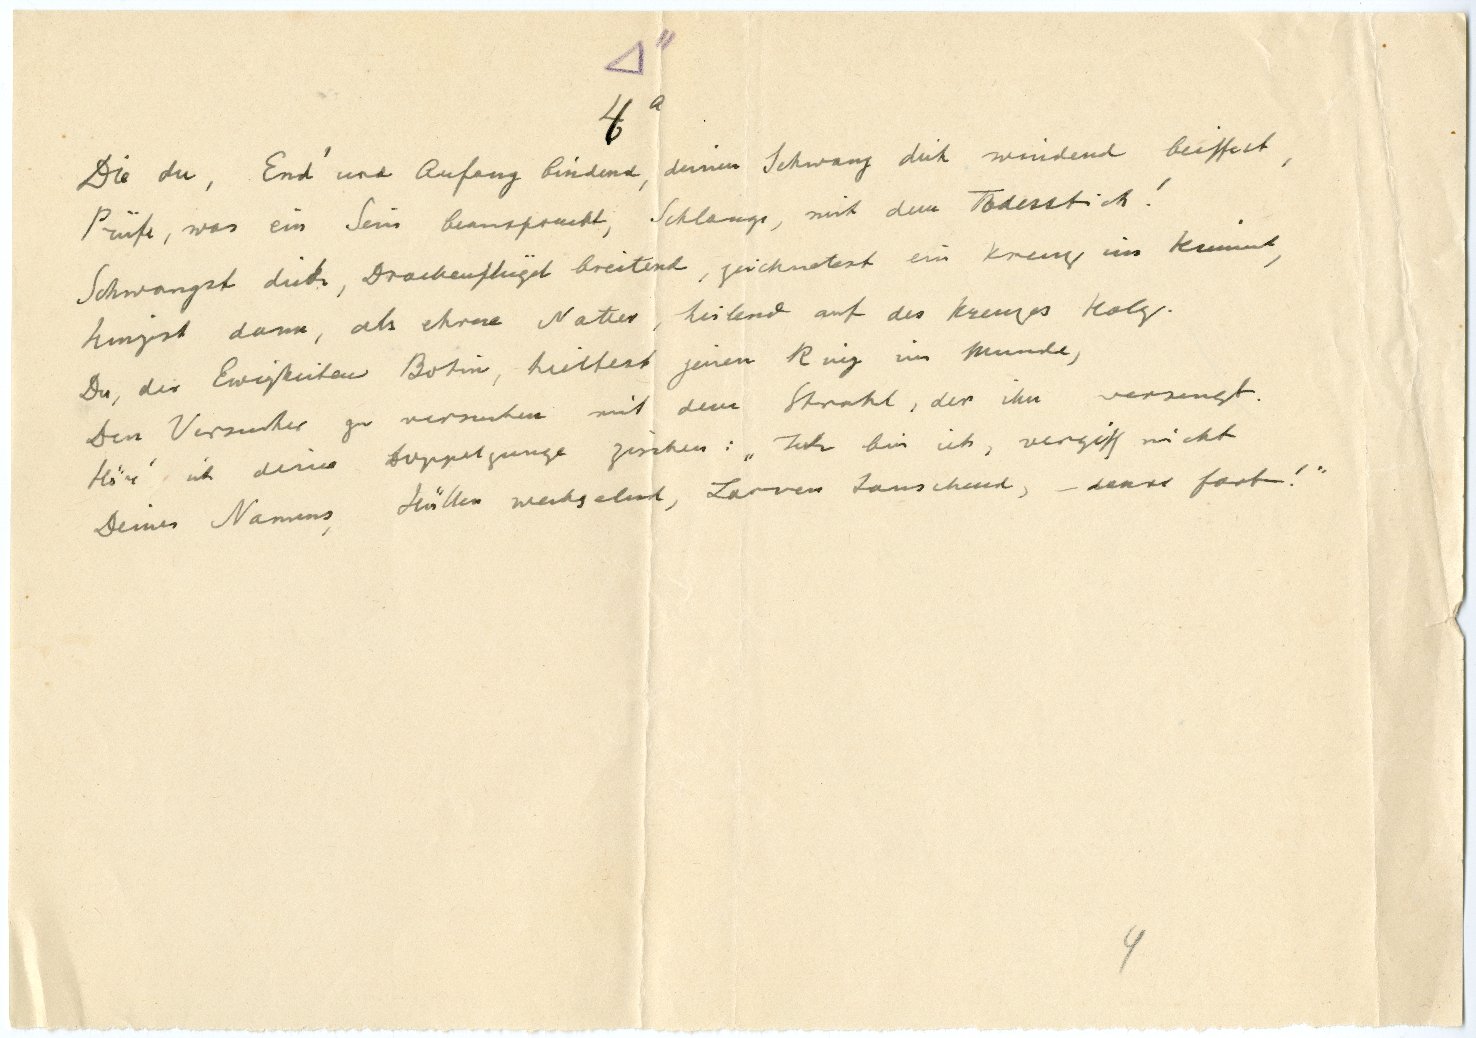 4 a
Die du, End' und Anfang bindend, deinen Schwanz dich windend beissest,
Prüfe, was ein Sein beansprucht, Schlange, mit dem Todesstich!
Schwangst dich, Drachenflügel breitend, zeichnetest ein Kreuz im
hingst dann, als ehrne Natter, heilend auf des Kreuzes Holz.
Du, der Ewigkeiten Botin, hieltest jenen Ring im Munde,
Den Versucher zu versuchen mit dem Strahl, der ihn versengt.
Hör' ich deine Doppelzunge zischen: „Ich bin ich, vergiss nicht
Deines Namens, Hüllen wechselnd, Larven tauschend, – daure fort!"
4